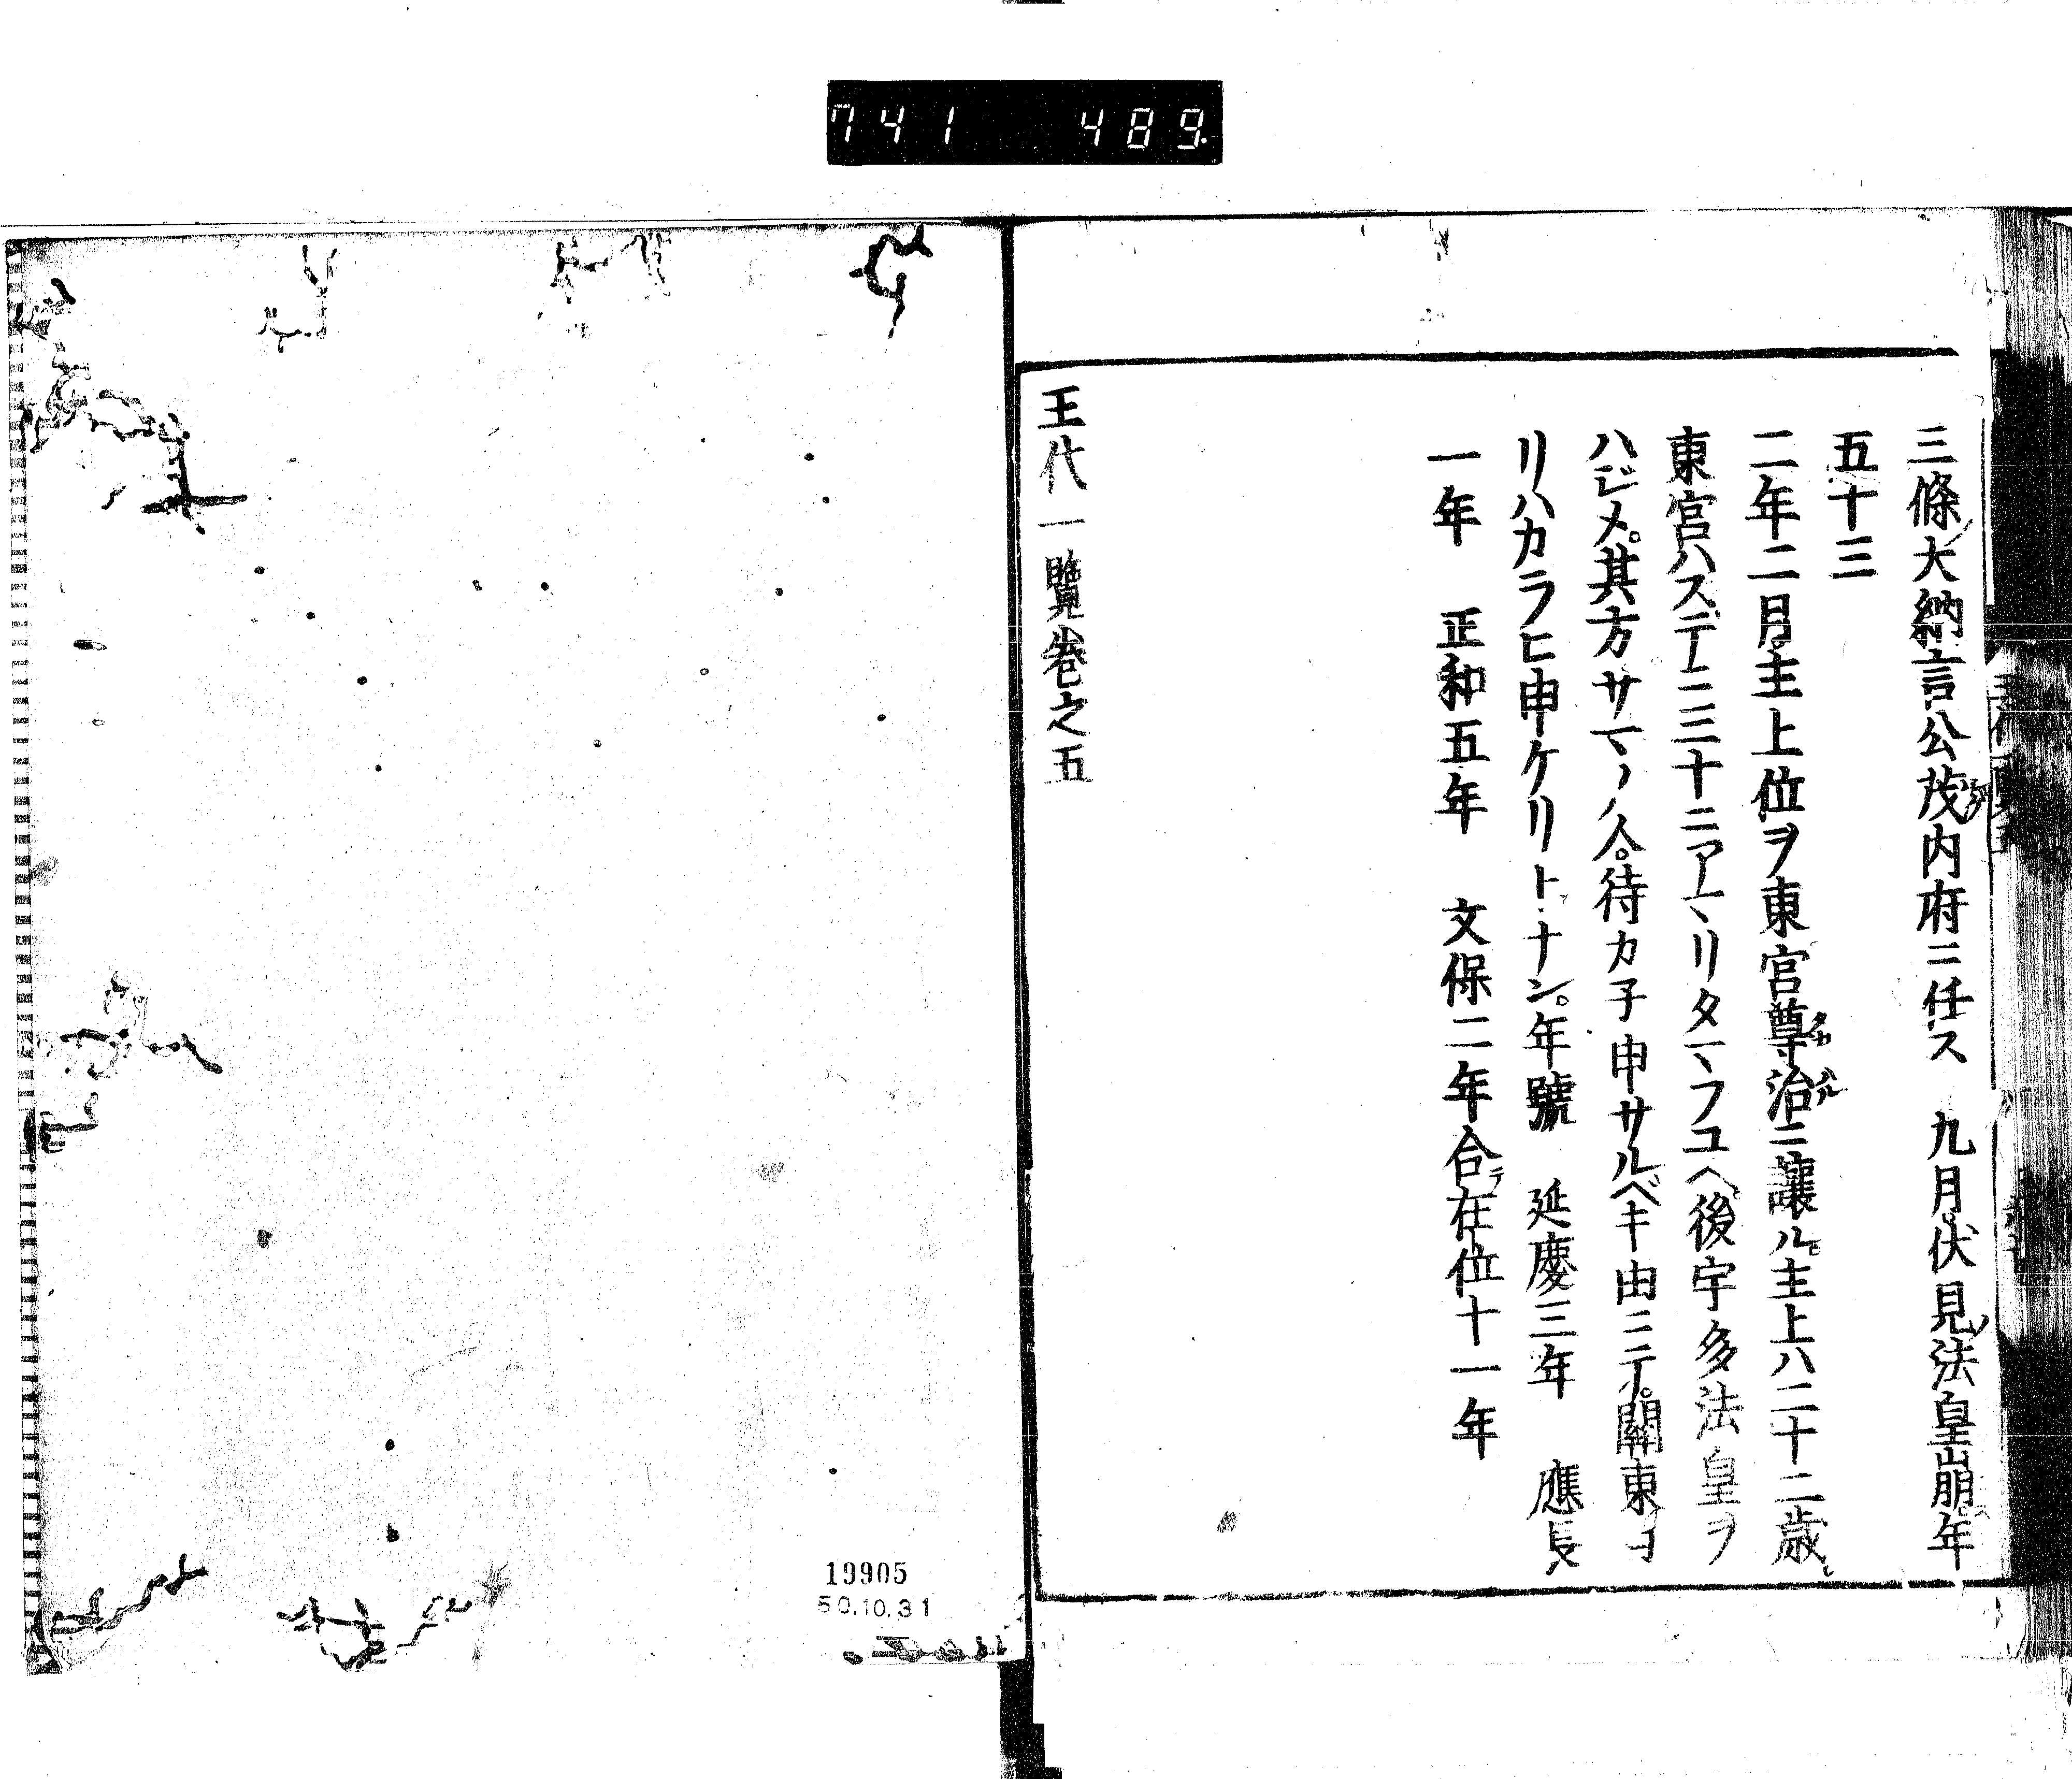 741 489
三條ノ大納言公茂内府ニ任ス 九月伏見ノ法皇崩ス年
五十三
二年二月主上位ヲ東宮尊治ニ讓ル主上ハ二十二歳
東宮ハスデニ三十ニアマリタマフユヘ後宇多法皇ヲ
ハジメ其方サマノ人待カ子申サルベキ由ニテ關東ヨ
リハカラヒ申ケリトナン年號 延慶三年 應長
一年 正和五年 文保二年合テ在位十一年
王代一覽卷之五
19905
50.10.31